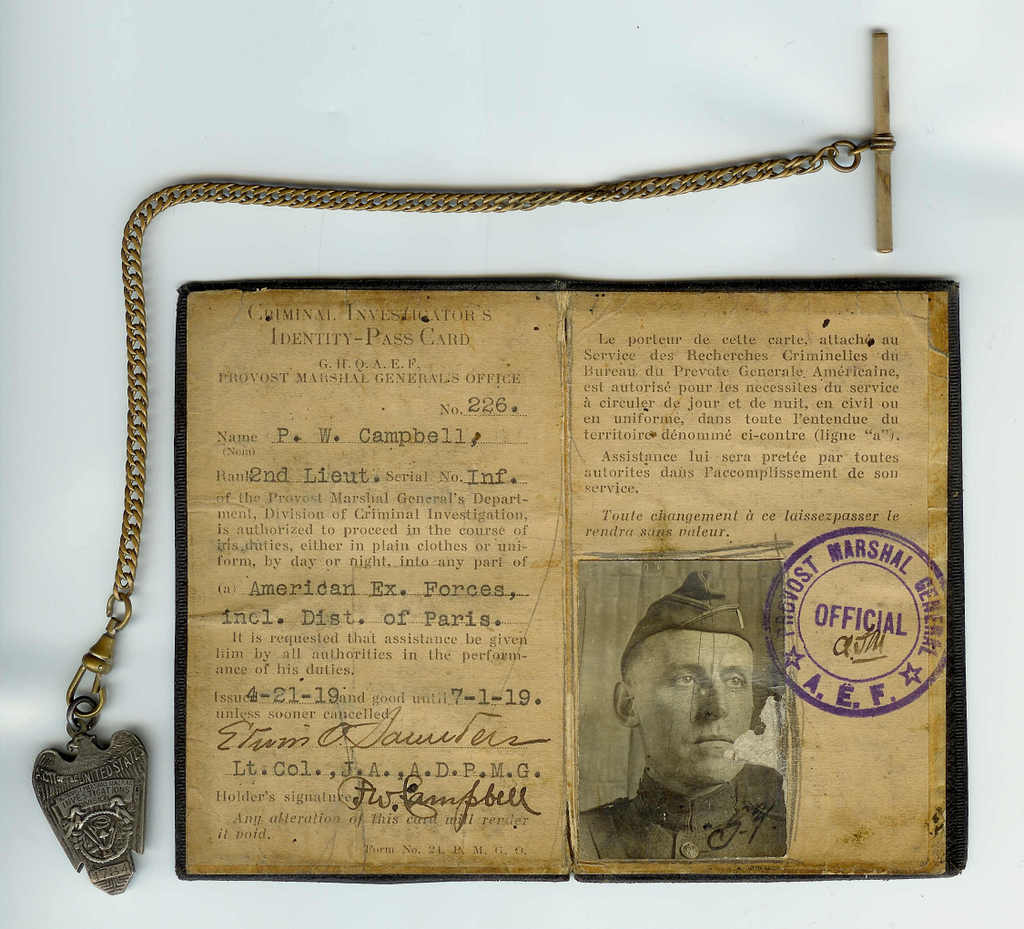 CRIMINAL INVESTIGATOR'S
IDENTITY-PASS CARD
G. H. Q. A. E. F.
PROVOST MARSHAL GENERAL'S OFFICE
No. 226.
Name P. W. Campbell,
(Nom)
Rank 2nd Lieut. Serial No. Inf.
of the Provost Marshal General's Depart-
ment, Division of Criminal Investigation,
is authorized to proceed in the course of
his duties, either in plain clothes or uni-
form, by day or night, into any part of
(a) American Ex. Forces,
incl. Dist. of Paris.
It is requested that assistance be given
him by all authorities in the perform-
ance of his duties.
Issued 4-21-19 and good until 7-1-19.
unless sooner cancelled
Edwin O Saunders
Lt. Col., J.A., A.D.P.M.G.
Holder's signature P.W. Campbell
Any alteration of this card will render
it void.
Form No. 24, P. M. G. O.
Le porteur de cette carte, attaché au
Service des Recherches Criminelles du
Bureau du Prevote Generale Américaine,
est autorisé pour les necessites du service
à circuler de jour et de nuit, en civil ou
en uniforme, dans toute l'entendue du
territoire dénommé ci-contre (ligne "a").
Assistance lui sera pretée par toutes
autorites dans l'accomplissement de son
service.
Toute changement à ce laissezpasser le
rendra sans valeur.
PROVOST MARSHAL GENERAL
OFFICIAL
A. E. F.
UNITED STATES